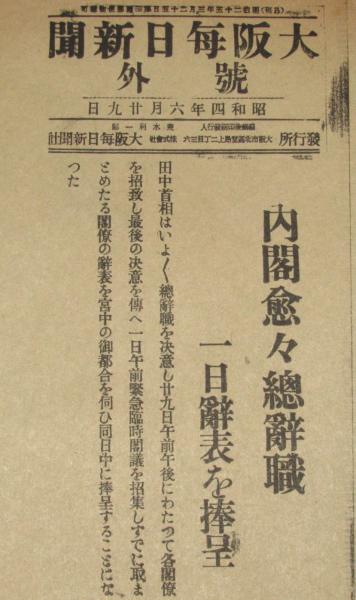 大阪毎日新聞
號外
昭和四年六月廿九日
發行所 大阪市北區堂島上二丁目三六 株式會社 大阪毎日新聞社
内閣愈々總辭職
一日辭表を捧呈
田中首相はいよ〱總辭職を決意し廿九日午前午後にわたつて各閣僚
を招致し最後の決意を傳へ一日午前緊急臨時閣議を招集しすでに取ま
とめたる閣僚の辭表を宮中の御都合を伺ひ同日中に捧呈することにな
つた